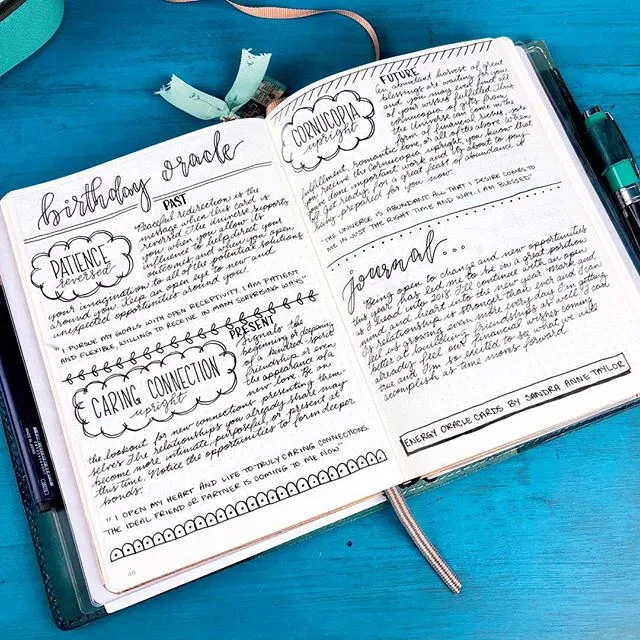 birthday oracle
PAST
PATIENCE
reversed
Peaceful redirection is the
message when this card is
reversed. The Universe supports
you when you allow its
influence to help direct your
interest and when you open
your imagination to all of the potential solutions
around you. Keep an open eye to new and
unexpected opportunities around you.
"I PURSUE MY GOALS WITH OPEN RECEPTIVITY. I AM PATIENT
AND FLEXIBLE, WILLING TO RECEIVE IN MANY SURPRISING WAYS"
PRESENT
CARING CONNECTION
upright
Signals the
beginning or deepening
of a kindred spirit
friendship or even
the appearance of a
new love. Be on
the lookout for new connections presenting them-
selves. The relationships you already share may
become more intimate, purposeful or present at
this time. Notice the opportunities to form deeper
bonds.
"I OPEN MY HEART AND LIFE TO TRULY CARING CONNECTIONS.
THE IDEAL FRIEND OR PARTNER IS COMING TO ME NOW"
46
FUTURE
CORNUCOPIA
upright
An abundant harvest of great
blessings are waiting for you
and you may even find all
of your wishes fulfilled. This
cornucopia of gifts from
the Universe can come in the
form of financial riches, job
fulfillment, romantic love, or all of the above. When
you receive the Cornucopia upright, you know that
you've done important work and it's about to pay
off. Get ready for a great feast of abundance is
being prepared for you now.
"THE UNIVERSE IS ABUNDANT. ALL THAT I DESIRE COMES TO
ME IN JUST THE RIGHT TIME AND WAY. I AM BLESSED"
journal...
Being open to change and new opportunities
this year has led me to be in a great position
as I head into 2018. I'll continue with an open
mind and heart into the new year. Mark and
I's relationship is stronger than ever and I can
feel us growing even more every day. I'm getting
better at building friendships as well. I can
already feel our financial wishes coming
true and I'm so excited to see what we will
accomplish as time moves forward.
ENERGY ORACLE CARDS BY SANDRA ANNE TAYLOR